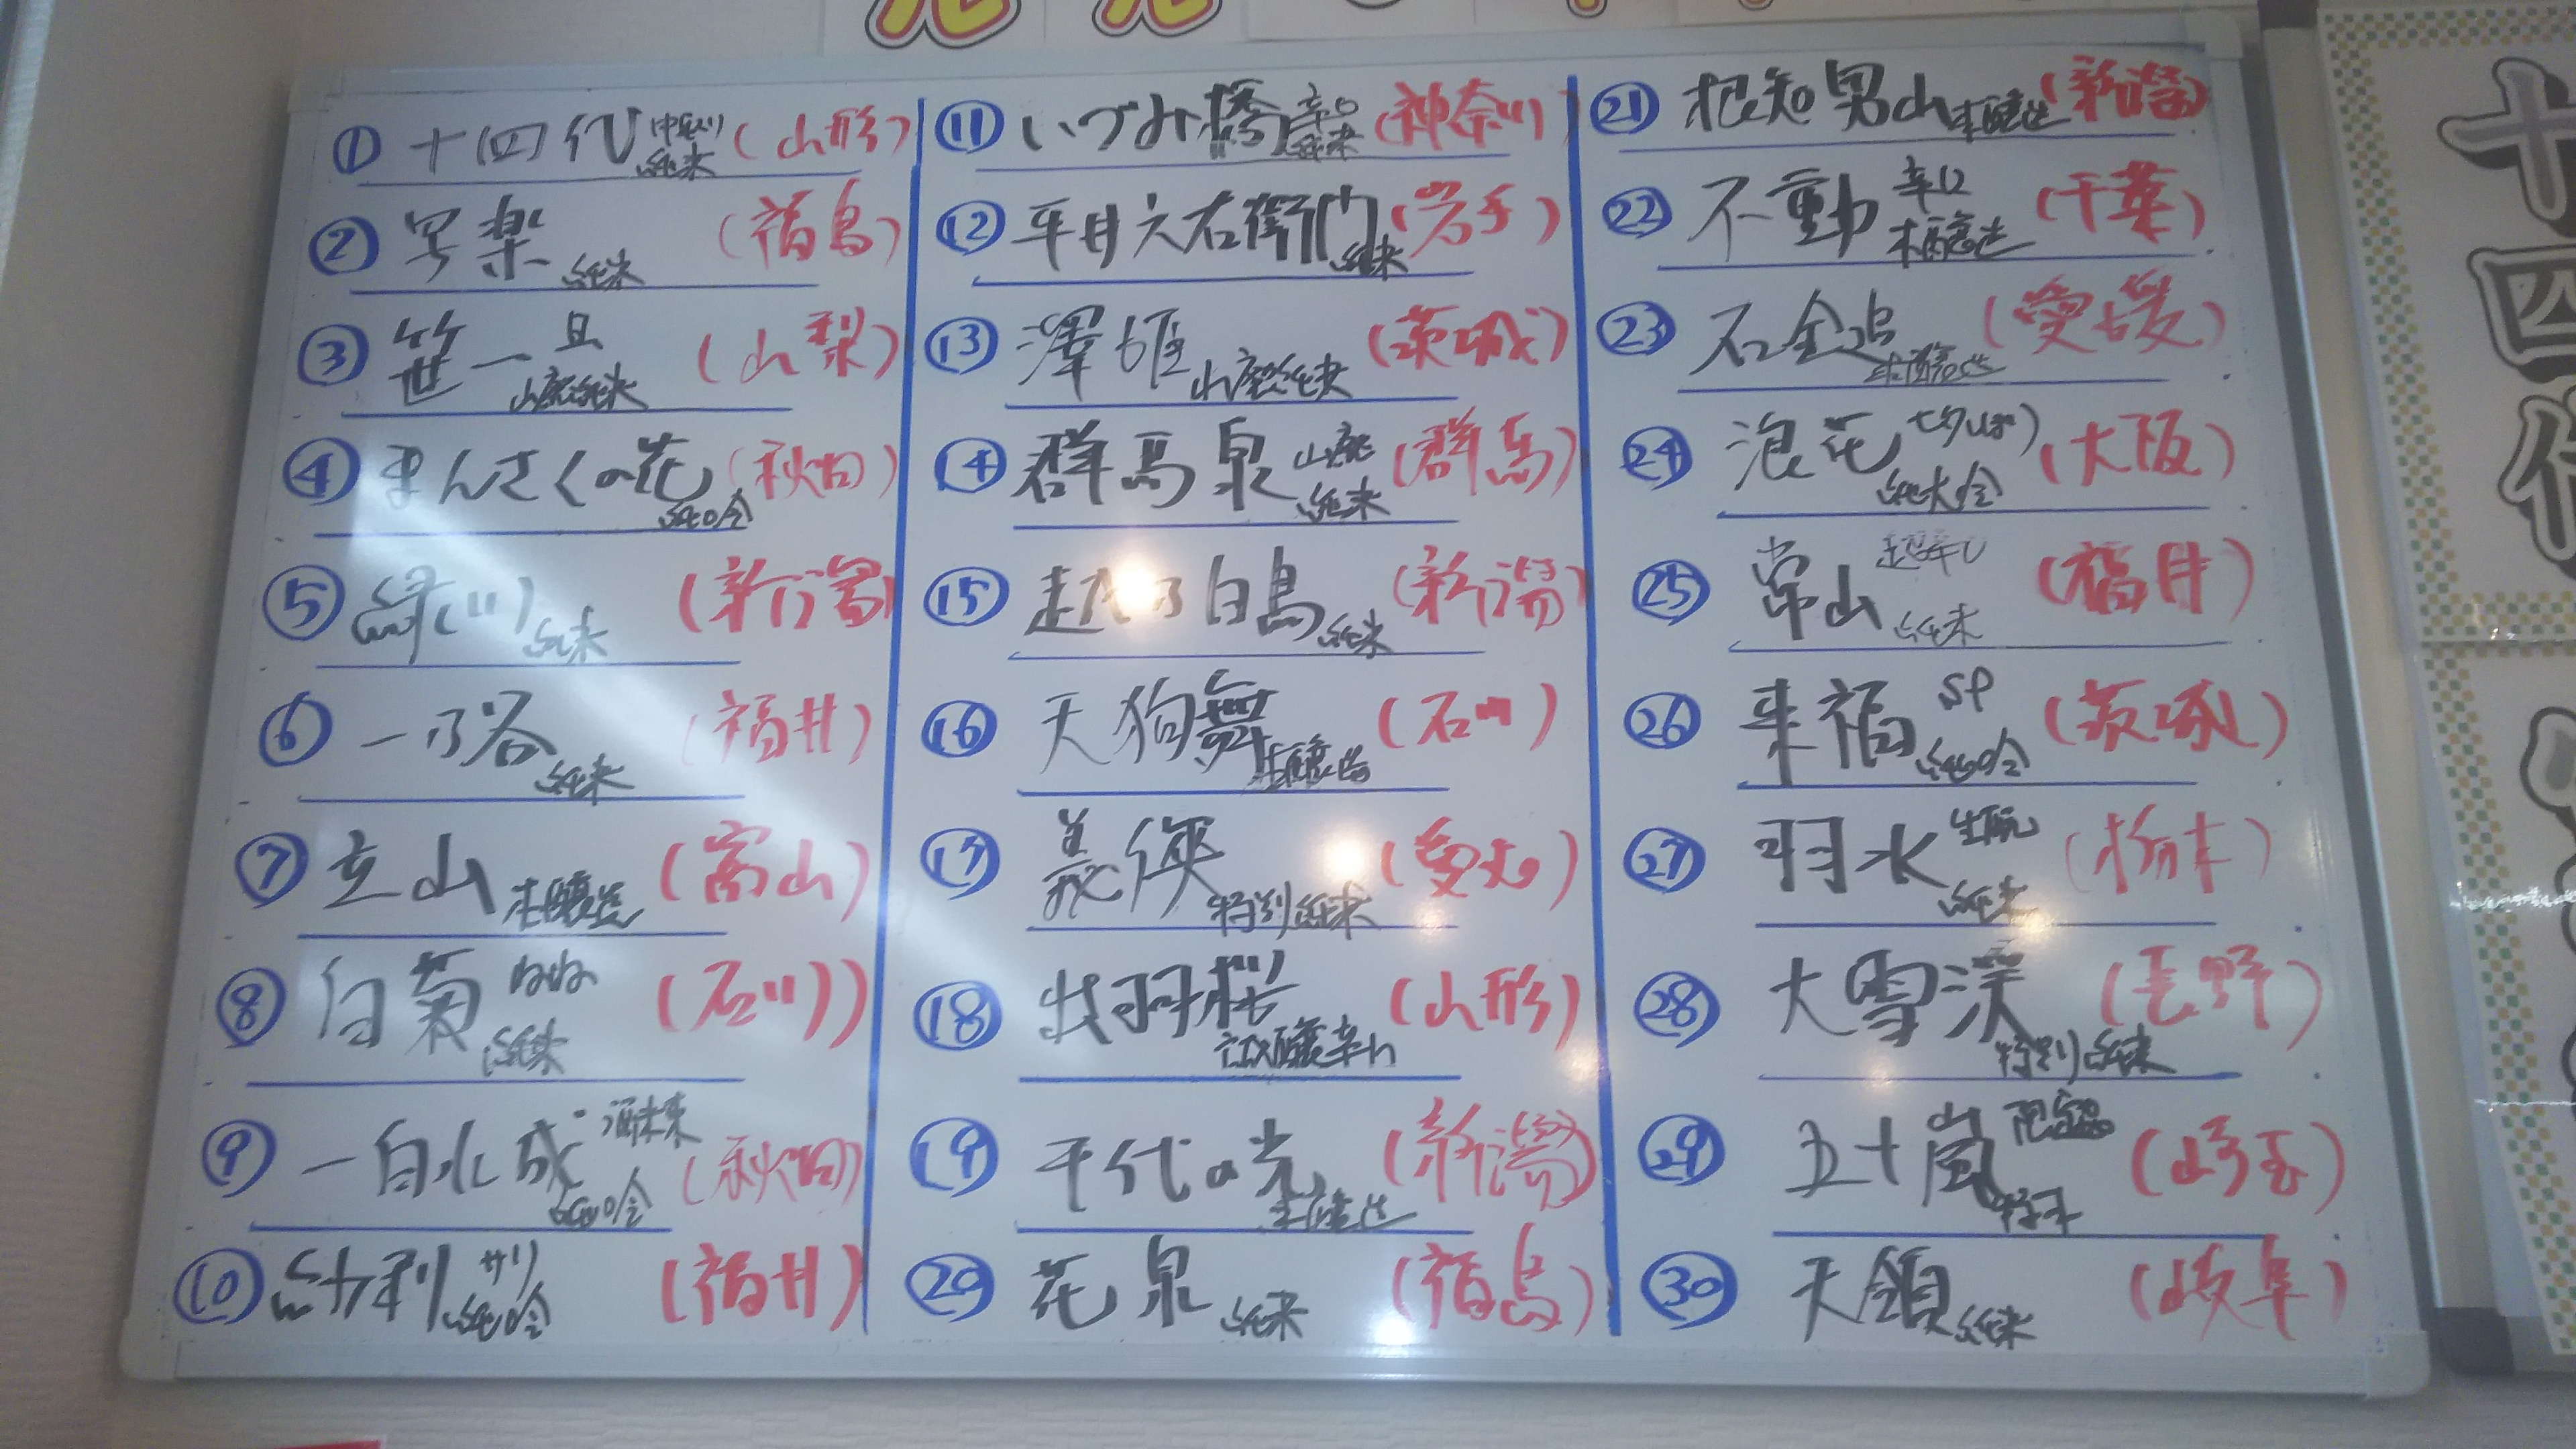 ① 十四代 中取り 純米 (山形)
② 写楽 純米 (福島)
③ 笹一 旦 山廃純米 (山梨)
④ まんさくの花 純吟 (秋田)
⑤ 緑川 純米 (新潟)
⑥ 一乃谷 純米 (福井)
⑦ 立山 本醸造 (富山)
⑧ 白菊 純米 (石川)
⑨ 一白水成 酒未来 純吟 (秋田)
⑩ 純吟 (福井)
⑪ いづみ橋 辛口 純米 (神奈川)
⑫ 平井六右衛門 純米 (岩手)
⑬ 澤姫 山廃純米 (茨城)
⑭ 群馬泉 山廃 純米 (群馬)
⑮ 越乃白鳥 純米 (新潟)
⑯ 天狗舞 (石川)
⑰ 義侠 特別純米 (愛知)
⑱ 出羽桜 辛口 (山形)
⑲ 千代の光 本醸造 (新潟)
⑳ 花泉 純米 (福島)
㉑ 根知男山 本醸造 (新潟)
㉒ 不動 辛口 本醸造 (千葉)
㉓ 石鎚 本醸造 (愛媛)
㉔ 浪花 七夕しぼり 純大吟 (大阪)
㉕ 常山 超辛口 純米 (福井)
㉖ 来福 SP 純吟 (茨城)
㉗ 羽水 生酛 純米 (栃木)
㉘ 大雪渓 特別純米 (長野)
㉙ 五十嵐 (埼玉)
㉚ 天領 純米 (岐阜)
十四代